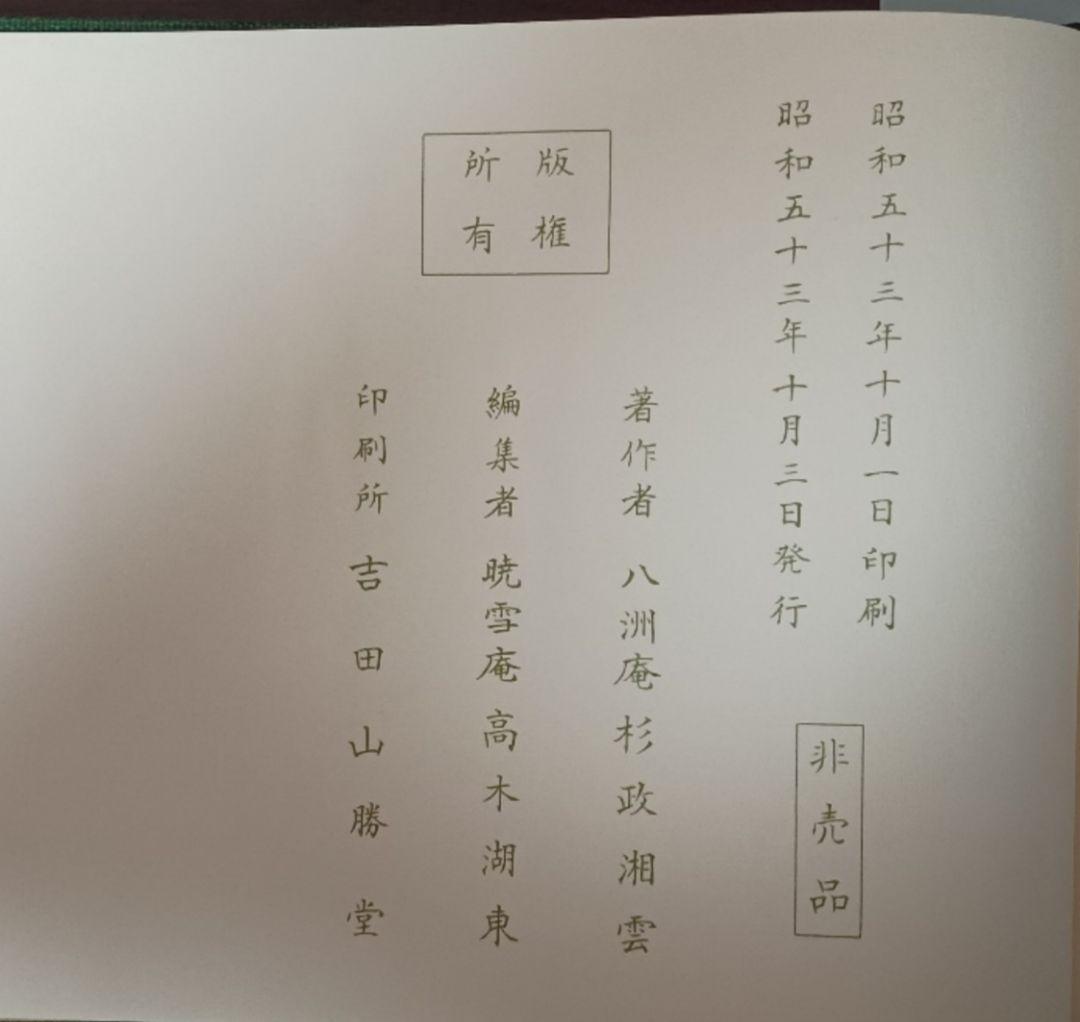 昭和五十三年十月一日印刷
昭和五十三年十月三日発行
非売品
版権
所有
著作者 八洲庵 杉政湘雲
編集者 暁雪庵 高木湖東
印刷所 吉田山勝堂